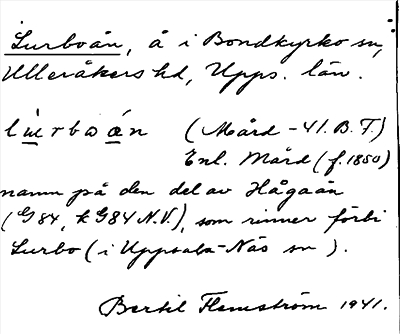 Lurboån, å i Bondkyrko sn,
Ulleråkers hd, Upps. län.
lu̇rbɷån (Mård -41. B.F.)
Enl. Mård (f. 1850)
namn på den del av Hågaån
(G 84, k G84 N.V.), som rinner förbi
Lurbo (i Uppsala-Näs sn).
Bertil Flemström 1941.